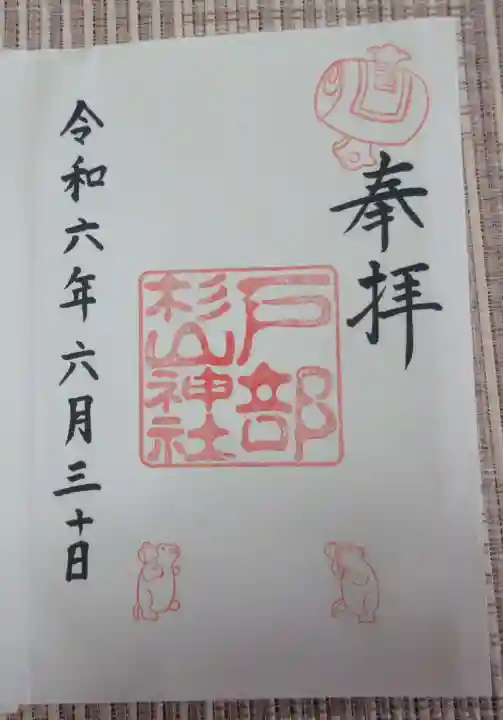 奉拝
戸部
杉山神社
令和六年六月三十日